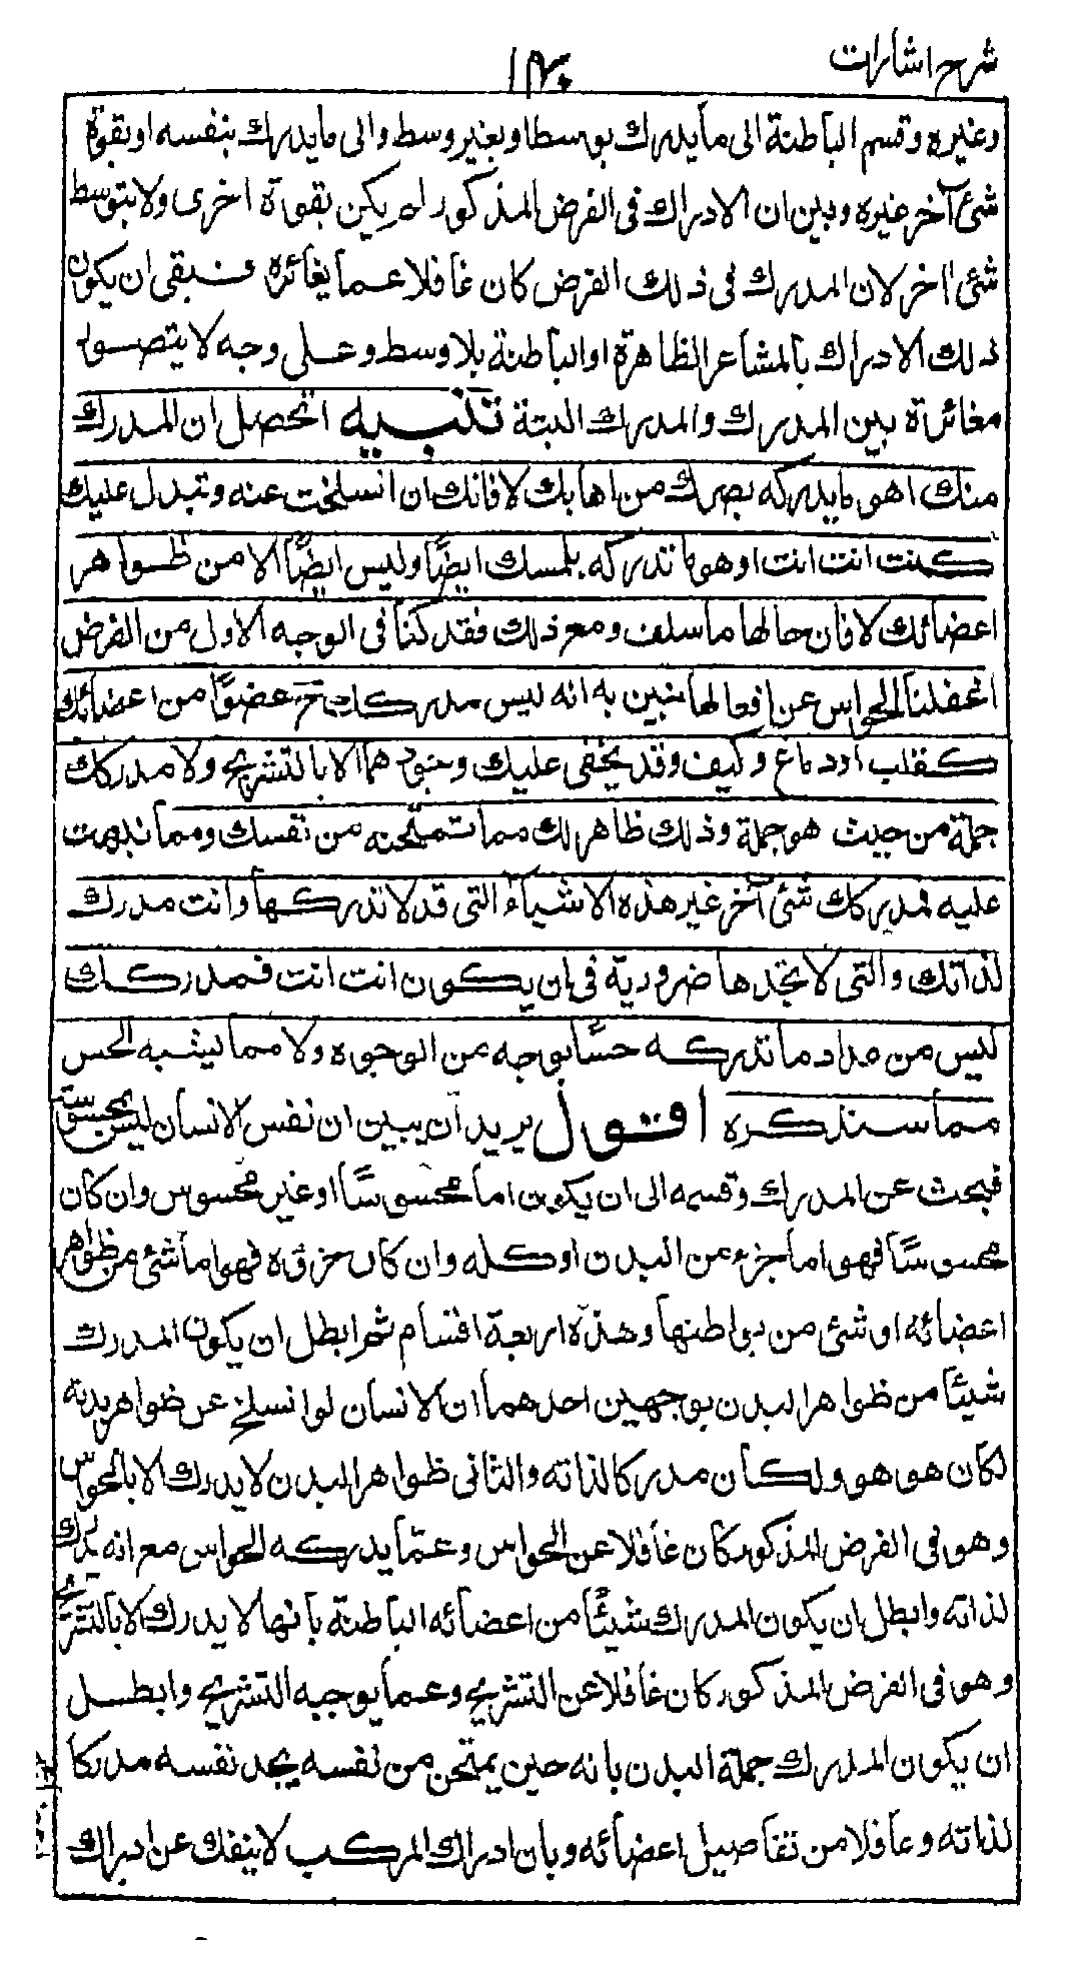 شرح اشارات
وغيره وقسم الباطنة الى ما يدرك بوسط او بغير وسط والى ما يدرك بنفسه او بقوة
شئ آخر غيره وبين ان الادراك فى الفرض المذكور لم يكن بقوة اخرى ولا بتوسط
شئ آخر لان المدرك فى ذلك الفرض كان غافلا عما يغائره فبقى ان يكون
ذلك الادراك بالمشاعر الظاهرة او الباطنة بلا وسط وعلى وجه لا يتصور
مغائرة بين المدرك والمدرك البتة تنبيه اتحصل ان المدرك
منك اهو ما يدركه بصرك من اهابك لا فانك ان انسلخت عنه وتبدل عليك
كنت انت انت او هو ما تدركه بلمسك ايضًا وليس ايضًا الا من ظواهر
اعضائك لا فان حالها ما سلف ومع ذلك فقد كنا فى الوجه الاول من الفرض
اغفلنا الحواس عن افعالها فتبين به انه ليس مدركك ح عضوًا من اعضائك
كقلب او دماغ وكيف وقد يخفى عليك وجودهما الا بالتشريح ولا مدركك
جملة من حيث هو جملة وذلك ظاهر لك مما تمتحنه من نفسك ومما نبهت
عليه فمدركك شئ آخر غير هذه الاشياء التى قد لا تدركها وانت مدرك
لذاتك والتى لا تجدها ضرورية فى ان يكون انت انت فمدركك
ليس من عداد ما تدركه حسًا بوجه من الوجوه ولا مما يشبه الحس
مما سنذكره اقول يريد ان يبين ان نفس الانسان ليس بمحسوسة
فبحث عن المدرك وقسمه الى ان يكون اما محسوسًا او غير محسوس وان كان
محسوسًا فهو اما جزء من البدن او كله وان كان جزؤه فهو اما شئ من ظواهر
اعضائه او شئ من بواطنها وهذه اربعة اقسام ثم ابطل ان يكون المدرك
شيئًا من ظواهر البدن بوجهين احدهما ان الانسان لو انسلخ عن ظواهر بدنه
لكان هو هو ولكان مدركا لذاته والثانى ظواهر البدن لا يدرك الا بالحواس
وهو فى الفرض المذكور كان غافلا عن الحواس وعمّا يدركه الحواس مع انه يدرك
لذاته وابطل ان يكون المدرك شيئًا من اعضائه الباطنة بانها لا يدرك الا بالتشريح
وهو فى الفرض المذكور كان غافلا عن التشريح وعما يوجبه التشريح وابطل
ان يكون المدرك جملة البدن بانه حين يمتحن من نفسه يجد نفسه مدركا
لذاته وغافلا من تفاصيل اعضائه وبان ادراك المركب لا ينفك عن ادراك